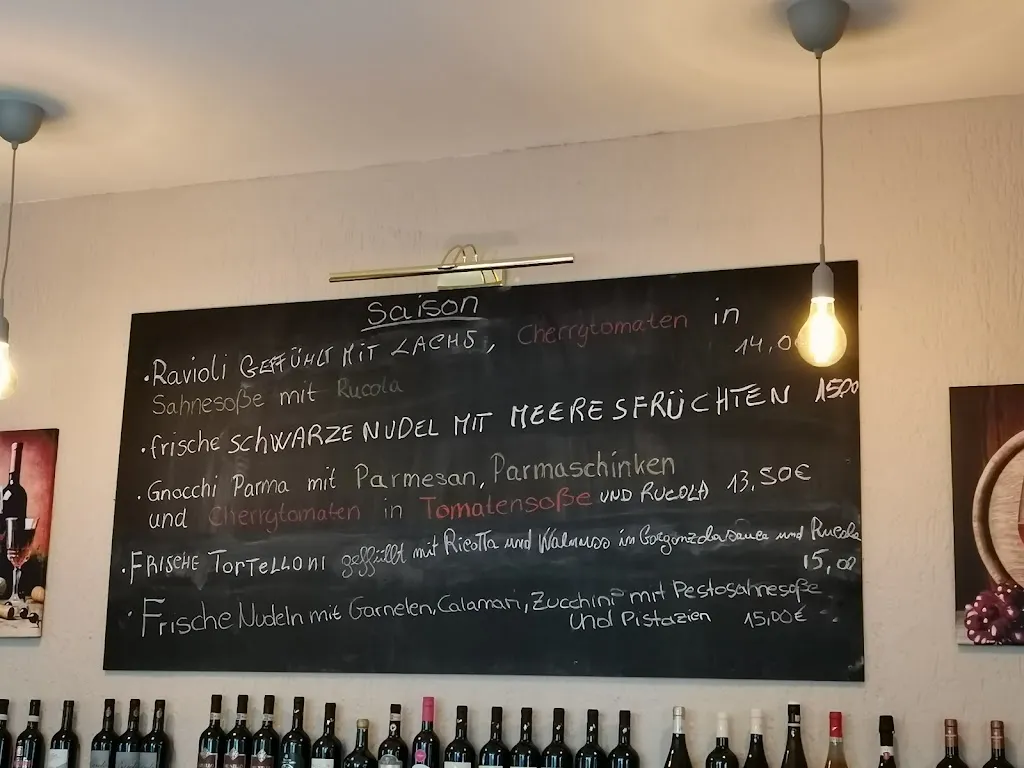 Saison
• Ravioli GEFFÜHLT MIT LACHS, Cherrytomaten in
14,0
Sahnesoße mit Rucola
• frische SCHWARZE NUDEL MIT MEERESFRÜCHTEN 15,00
• Gnocchi Parma mit Parmesan, Parmaschinken
und Cherrytomaten in Tomatensoße UND RUCOLA 13,50€
• FRISCHE TORTELLONI geffüllt mit Ricotta und Walnuss in Gorgonzolasauce und Rucola
15,00
• Frische Nudeln mit Garnelen, Calamari, Zucchini mit Pestosahnesoße
und Pistazien 15,00€